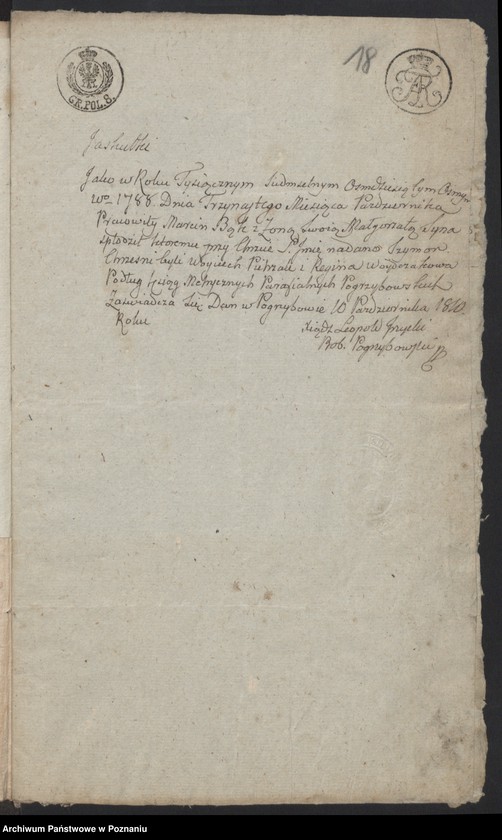 GR.POL.8.
18
FAR
Jaskułki
Jako w Roku Tysiącznym Siedmsetnym Osmdziesiątym Osmym
Wo 1788. Dnia Trzynastego Miesiąca Pazdziernika
Pracowity Marcin Bąk z Żoną Swoią Małgorzatą Syna
spłodził ktoremu przy Chrzcie S. Jmie nadano Szymon
Chrzesni byli Woyciech Pietrzak i Regina Woydziakowa
Podług Xsiąg Metrycznych Parafialnych Pogrzybowskich
Zaswiadcza się Dan w Pogrzybowie 10 Pazdziernika 1810.
Roku
Xiądz Leopold
Prob. Pogrzybowski
Archiwum Państwowe w Poznaniu